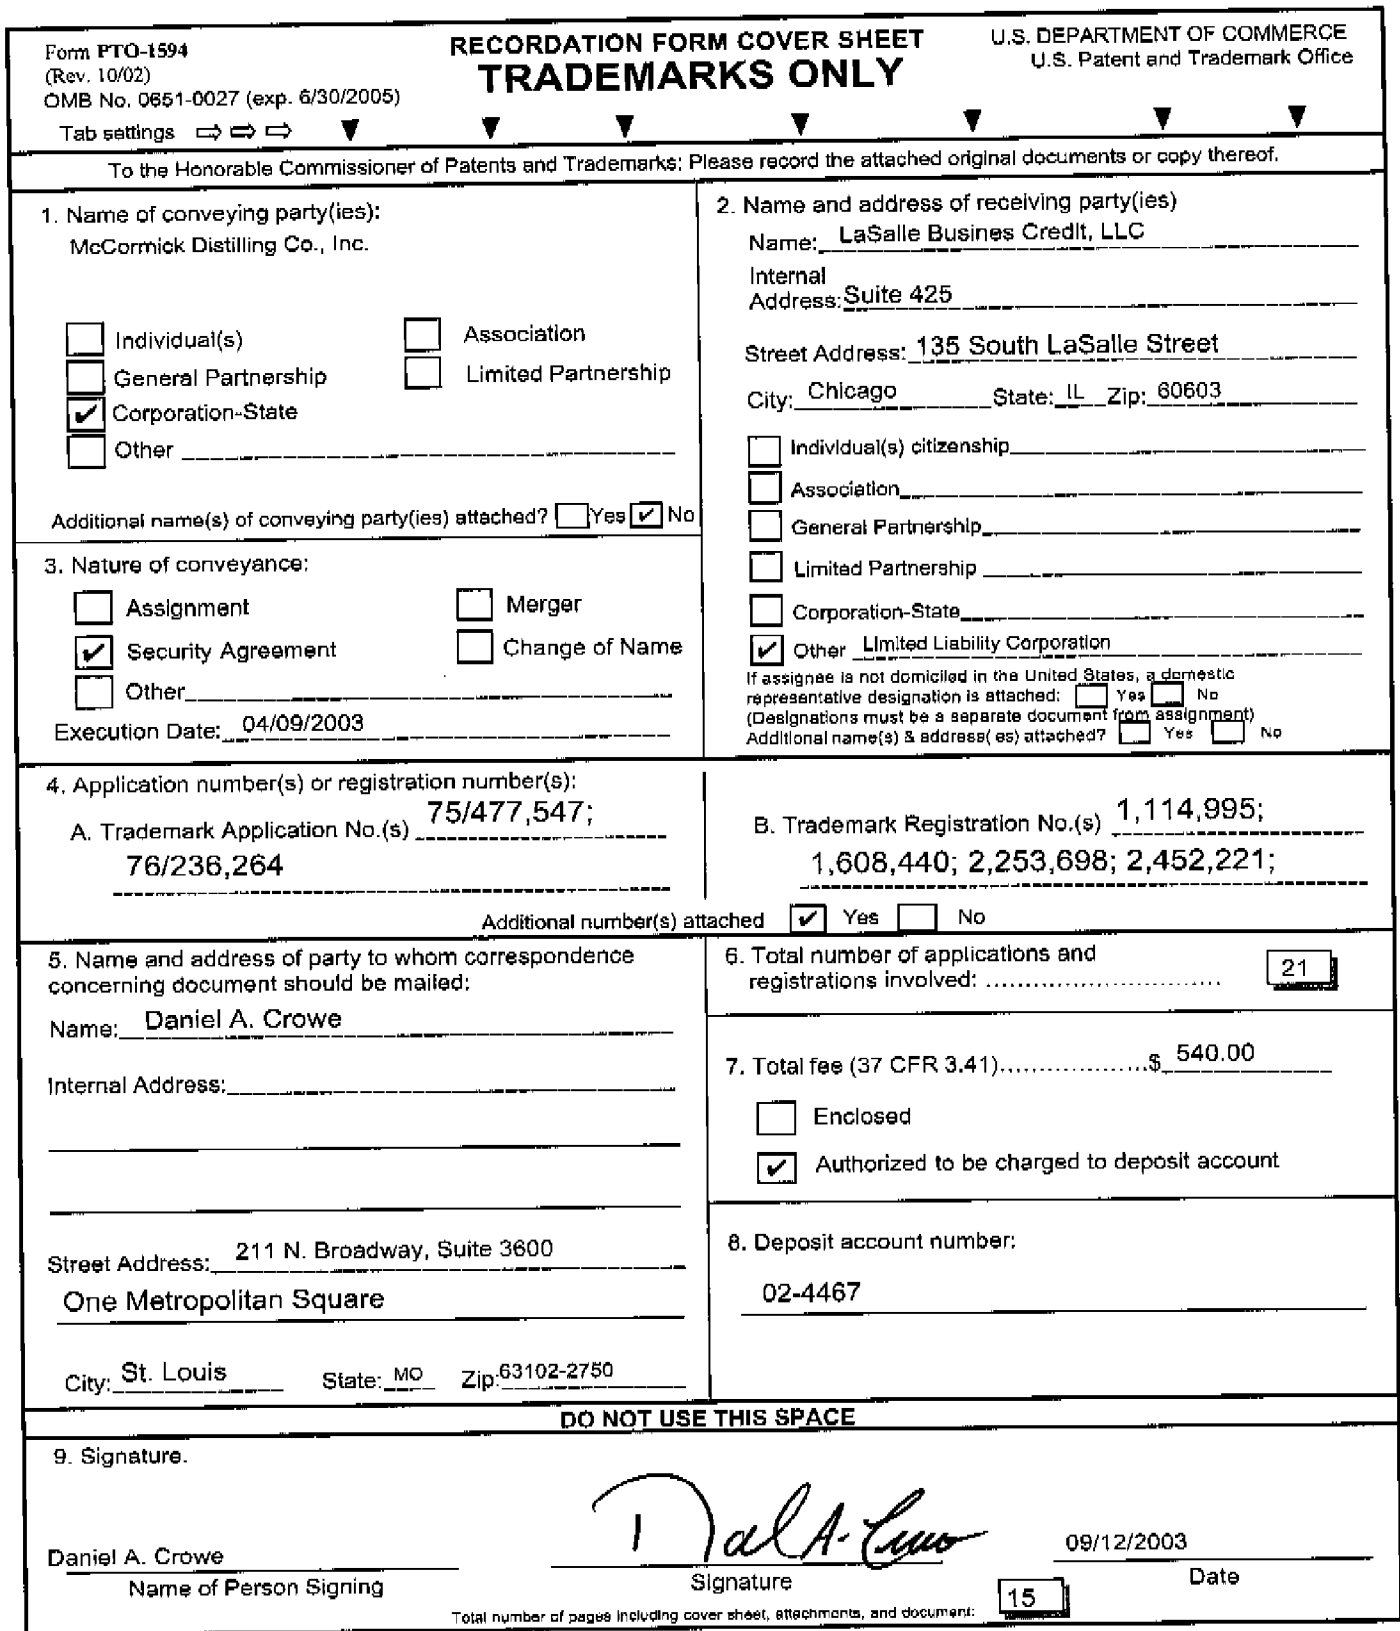 Form PTO-1594
(Rev. 10/02)
OMB No. 0651-0027 (exp. 6/30/2005)
RECORDATION FORM COVER SHEET
TRADEMARKS ONLY
U.S. DEPARTMENT OF COMMERCE
U.S. Patent and Trademark Office
Tab settings ⇨ ⇨ ⇨ ▼ ▼ ▼ ▼ ▼ ▼ ▼
To the Honorable Commissioner of Patents and Trademarks: Please record the attached original documents or copy thereof.
1. Name of conveying party(ies):
McCormick Distilling Co., Inc.
Individual(s) Association
General Partnership Limited Partnership
✔ Corporation-State
Other
Additional name(s) of conveying party(ies) attached? Yes ✔ No
2. Name and address of receiving party(ies)
Name: LaSalle Busines Credit, LLC
Internal
Address: Suite 425
Street Address: 135 South LaSalle Street
City: Chicago State: IL Zip: 60603
Individual(s) citizenship
Association
General Partnership
Limited Partnership
Corporation-State
✔ Other Limited Liability Corporation
If assignee is not domiciled in the United States, a domestic
representative designation is attached: Yes No
(Designations must be a separate document from assignment)
Additional name(s) & address( es) attached? Yes No
3. Nature of conveyance:
Assignment Merger
✔ Security Agreement Change of Name
Other
Execution Date: 04/09/2003
4. Application number(s) or registration number(s):
A. Trademark Application No.(s) 75/477,547;
76/236,264
B. Trademark Registration No.(s) 1,114,995;
1,608,440; 2,253,698; 2,452,221;
Additional number(s) attached ✔ Yes No
5. Name and address of party to whom correspondence
concerning document should be mailed:
Name: Daniel A. Crowe
Internal Address:
Street Address: 211 N. Broadway, Suite 3600
One Metropolitan Square
City: St. Louis State: MO Zip: 63102-2750
6. Total number of applications and
registrations involved: ............................ 21
7. Total fee (37 CFR 3.41)...................$ 540.00
Enclosed
✔ Authorized to be charged to deposit account
8. Deposit account number:
02-4467
DO NOT USE THIS SPACE
9. Signature.
Daniel A. Crowe
Name of Person Signing
Signature
09/12/2003
Date
Total number of pages including cover sheet, attachments, and document: 15